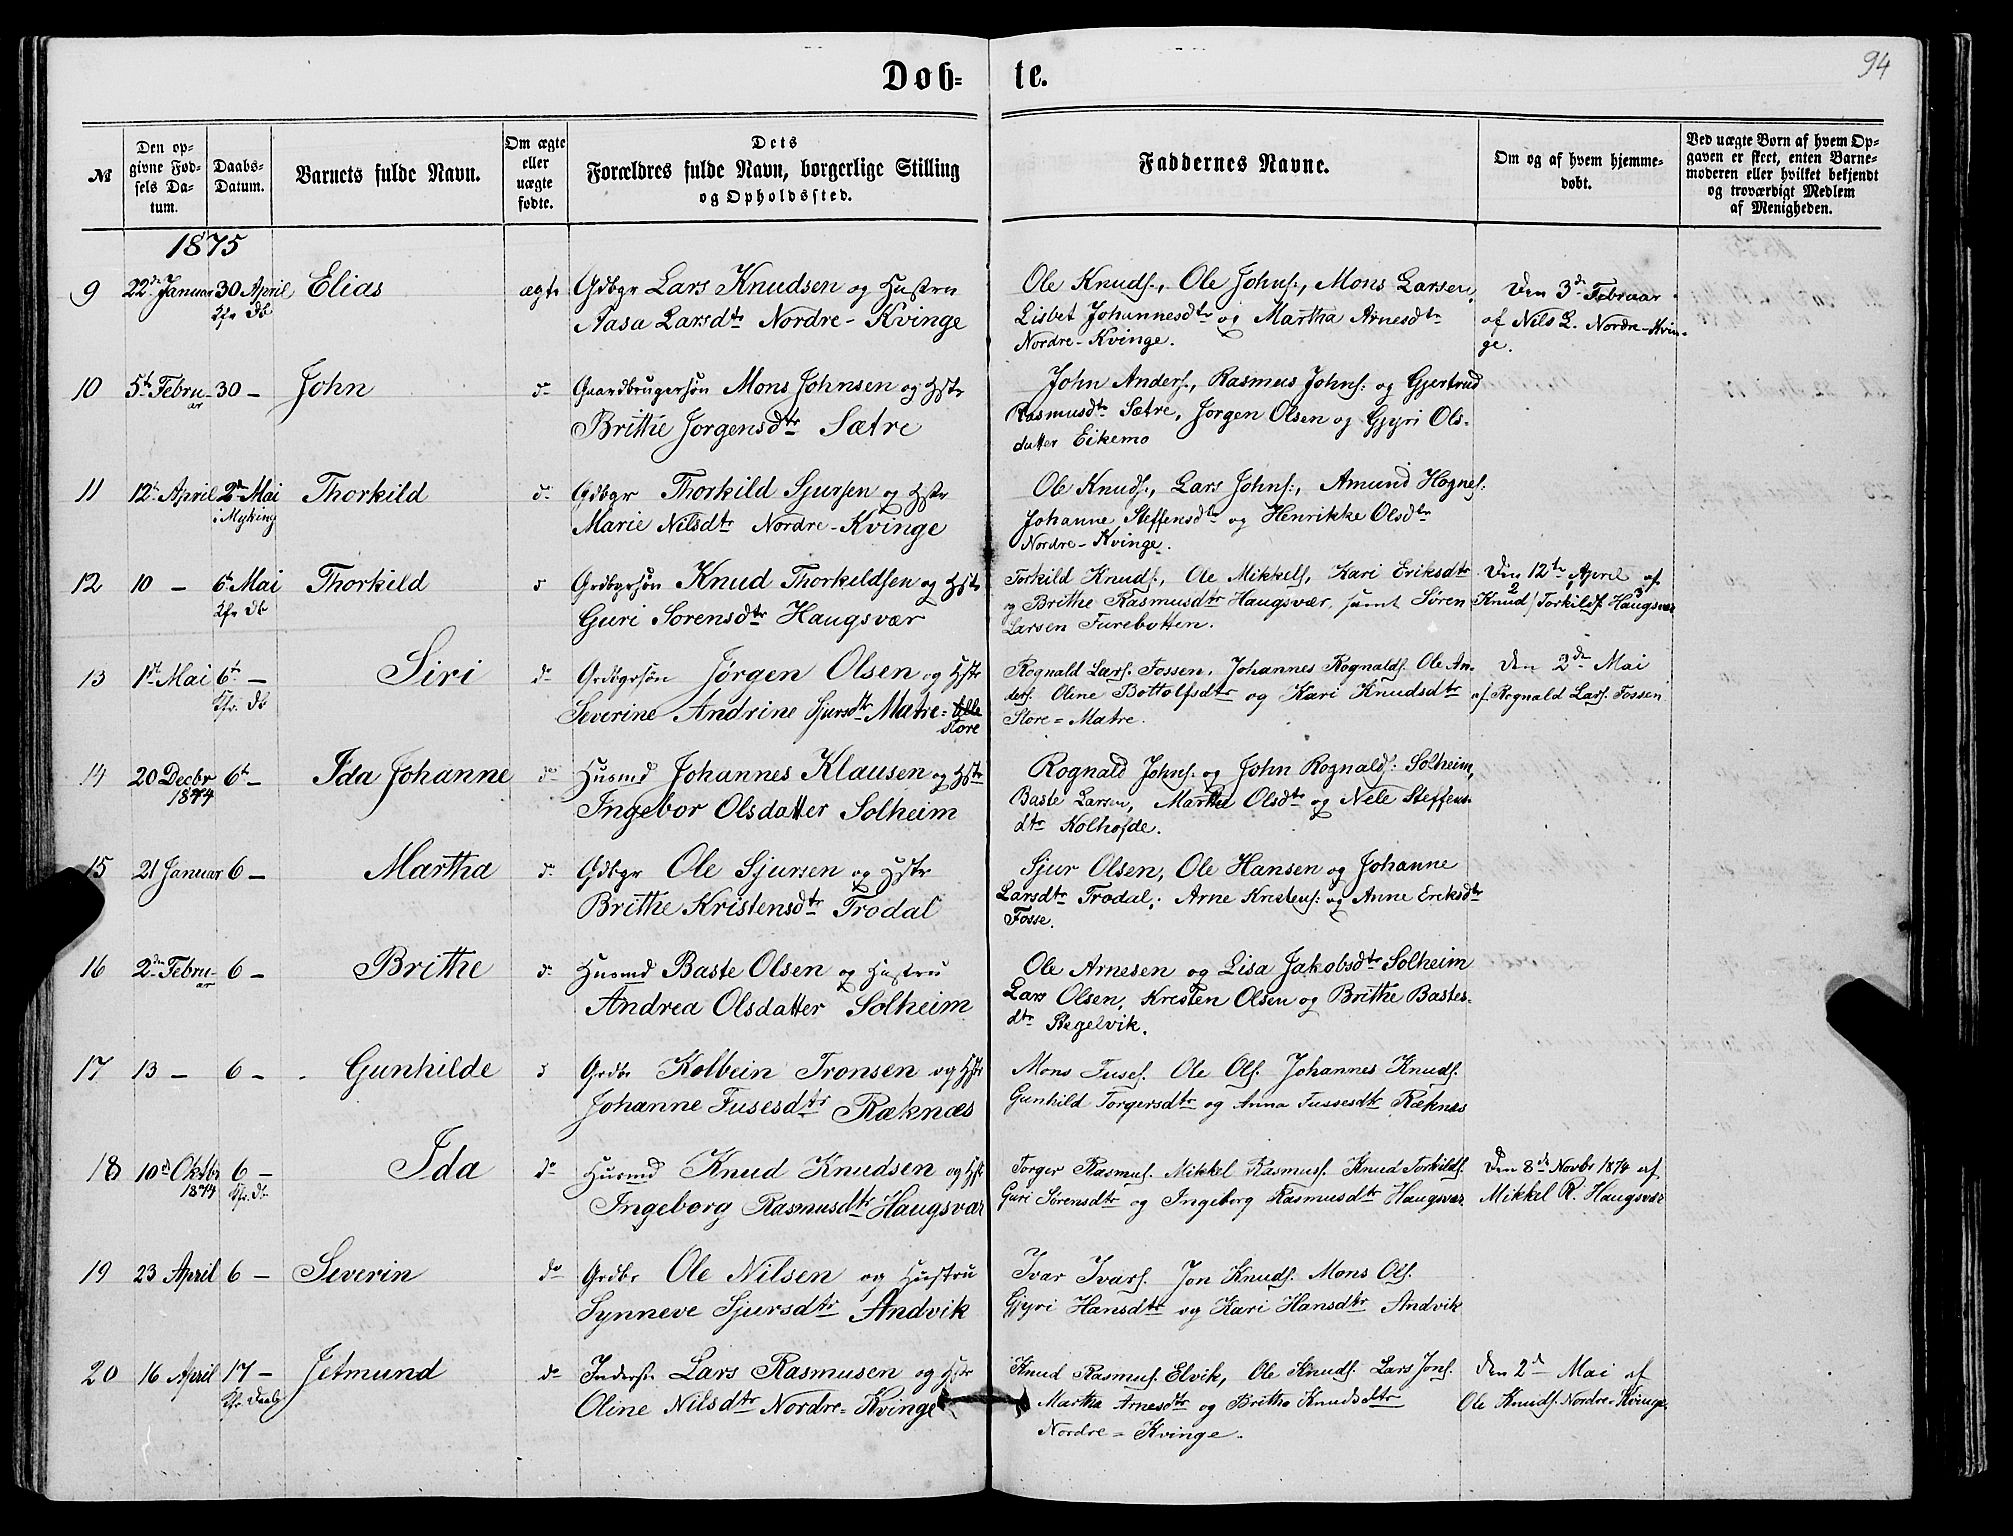 94
Døb-
te.
№
Den op-
givne Fød-
sels Da-
tum.
Daabs-
Datum.
Barnets fulde Navn.
Om ægte
eller
uægte
fødte.
Dets
Forældres fulde Navn, borgerlige Stilling
og Opholdssted.
Faddernes Navne.
Om og af hvem hjemme-
døbt.
Ved uægte Børn af hvem Op-
gaven er skeet, enten Barne-
moderen eller hvilket bekjendt
og troværdigt Medlem
af Menigheden.
1875
9 22de Januar 30 April Elias ægte Gdbgr Lars Knudsen og Hustru
Kfr Db
Aasa Larsdtr Nordre-Kvinge
Ole Knuds., Ole Johns., Mons Larsen,
Lisbet Johannesdtr og Martha Arnesdtr
Nordre-Kvinge.
Den 3de Februar
af Nils L. Nordre-Kvin-
ge.
10 5te Febru- 30 - John do Gaardbrugersøn Mons Johnsen og Hstr
ar
Brithe Jørgensdtr Sætre
John Anders., Rasmus Johns: og Gjertrud
Rasmusdtr Sætre, Jørgen Olsen og Gjyri Ols-
datter Eikemo
11 12te April 2de Mai Thorkild do Gdbgr Thorkild Sjursen og Hstr
i Myking
Marie Nilsdtr Nordre-Kvinge
Ole Knuds., Lars Johns:, Amund Hognes:
Johanne Steffensdtr og Henrikke Olsdtr
Nordre-Kvinge.
12 10 - 6te Mai Thorkild do Grdbgrsøn Knud Thorkildsen og Hstr
Kfr Db
Guri Sørensdtr Haugsvær
Torkild Knuds., Ole Mikkels, Kari Eriksdtr
og Brithe Rasmusdtr Haugsvær samt Søren
Larsen Furebotten.
Den 12te April af
Knud Torkilds. Haugsvær
13 1ste Mai 6te - Siri do Grdbgrsøn Jørgen Olsen og Hstr
Kfr. Db
Severine Andrine Sjursdtr Matre=
store
Rognald Lars. Fossen, Johannes Rognalds. Ole An-
ders. Oline Bottolfsdtr og Kari Knudsdtr
Store=Matre.
Den 2den Mai
af Rognald Lars. Fossen
14 20 Decbr 6te - Ida Johanne do Husmd Johannes Klausen og Hstr
1874
Ingebor Olsdatter Solheim
Rognald Johns. og John Rognalds: Solheim,
Baste Larsen, Marthe Olsdtr og Nele Steffens-
dtr Kolhofde.
15 21 Januar 6 - Martha do Gdbgr Ole Sjursen og Hstr
Brithe Kristensdtr Trodal
Sjur Olsen, Ole Hansen og Johanne
Larsdtr Trodal; Arne Kristens: og Anne Eriksdtr
Fosse.
16 2den Febru- 6 - Brithe do Husmd Baste Olsen og Hustru
ar
Andrea Olsdatter Solheim
Ole Arnesen og Lisa Jakobsdtr Solheim
Lars Olsen, Kristen Olsen og Brithe Bastes-
dtr Stegelvik.
17 13 - 6 - Gunhilde do Grdbr Kolbein Tronsen og Hstr
Johanne Fusesdtr Ræknæs
Mons Fuses. Ole Ols. Johannes Knuds.
Gunhild Torgersdtr og Anna Fussesdtr Ræknæs
18 10de Oktbr 6 - Ida do Husmd Knud Knudsen og Hstr
1874 Kfr. Db
Ingeborg Rasmusdtr Haugsvær
Torger Rasmus. Mikkel Rasmus. Knud Torkilds.
Guri Sørensdtr og Ingeborg Rasmusdtr Haugsvær
Den 8de Novbr 1874 af
Mikkel R. Haugsvær
19 23 April 6 - Severin do Grdbr Ole Nilsen og Hustru
Synneve Sjursdtr Andvik
Ivar Ivars. Jon Knuds. Mons Ols.
Gjyri Hansdtr og Kari Hansdtr Andvik
20 16 April 17 - Jetmund do Inderst Lars Rasmusen og Hstr
Kfr. Daab
Oline Nilsdtr Nordre=Kvinge
Knud Rasmus. Elvik, Ole Knuds. Lars Jons.
Martha Arnesdtr og Britha Knudsdtr
Nordre=Kvinge.
Den 2de Mai af
Ole Knuds. Nordre-Kvinge